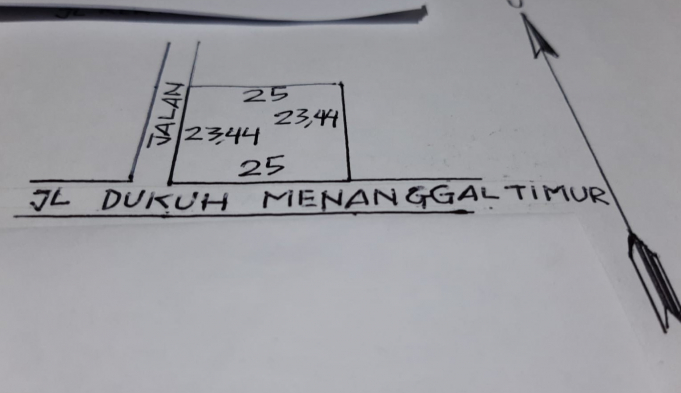 JALAN
25
23,44
23,44
25
JL DUKUH MENANGGAL TIMUR